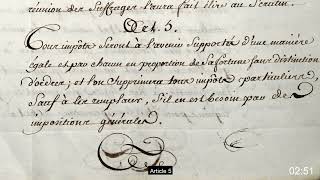 réunion des Suffrages l'aura fait élire au Scrutin.
Art. 5.
Tous impôts Seront à l'avenir Supportés d'une manière
égale et par chacun en proportion de Sa fortune sans distinction
d'ordres; et l'on Supprimera tous impôts particuliers,
Sauf à les remplacer, S'il en est besoin par des
impositions générales.
Article 5
02:51